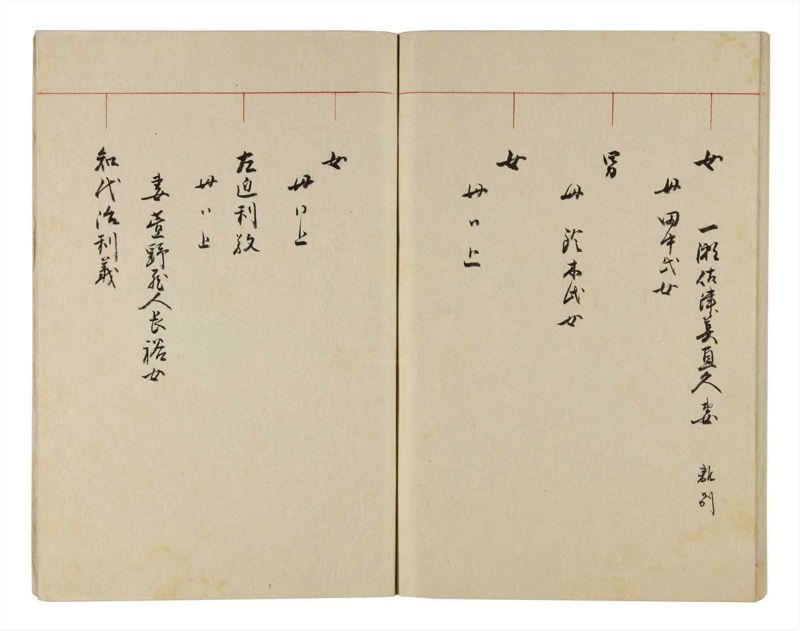 女 一瀬佐渡美直久妻 離別
母田中氏女
男
母鈴木氏女
女
母同上
女
母同上
左近利教
母同上
妻萱野隼人長裕女
知代治利義